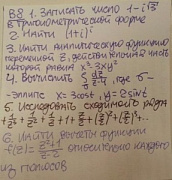 В8 1. Записать число 1-i√3
в тригонометрической форме
2. Найти (1+i)
3. Найти аналитическую функцию
переменной z, действительная часть
которой равна x³-3xy²
4. Вычислить ∮ dz, где σ-
эллипс x=3cost, y=2sint
5. Исследовать сходимость ряда
6. Найти вычеты функции
f(z)= относительно каждого
из полюсов